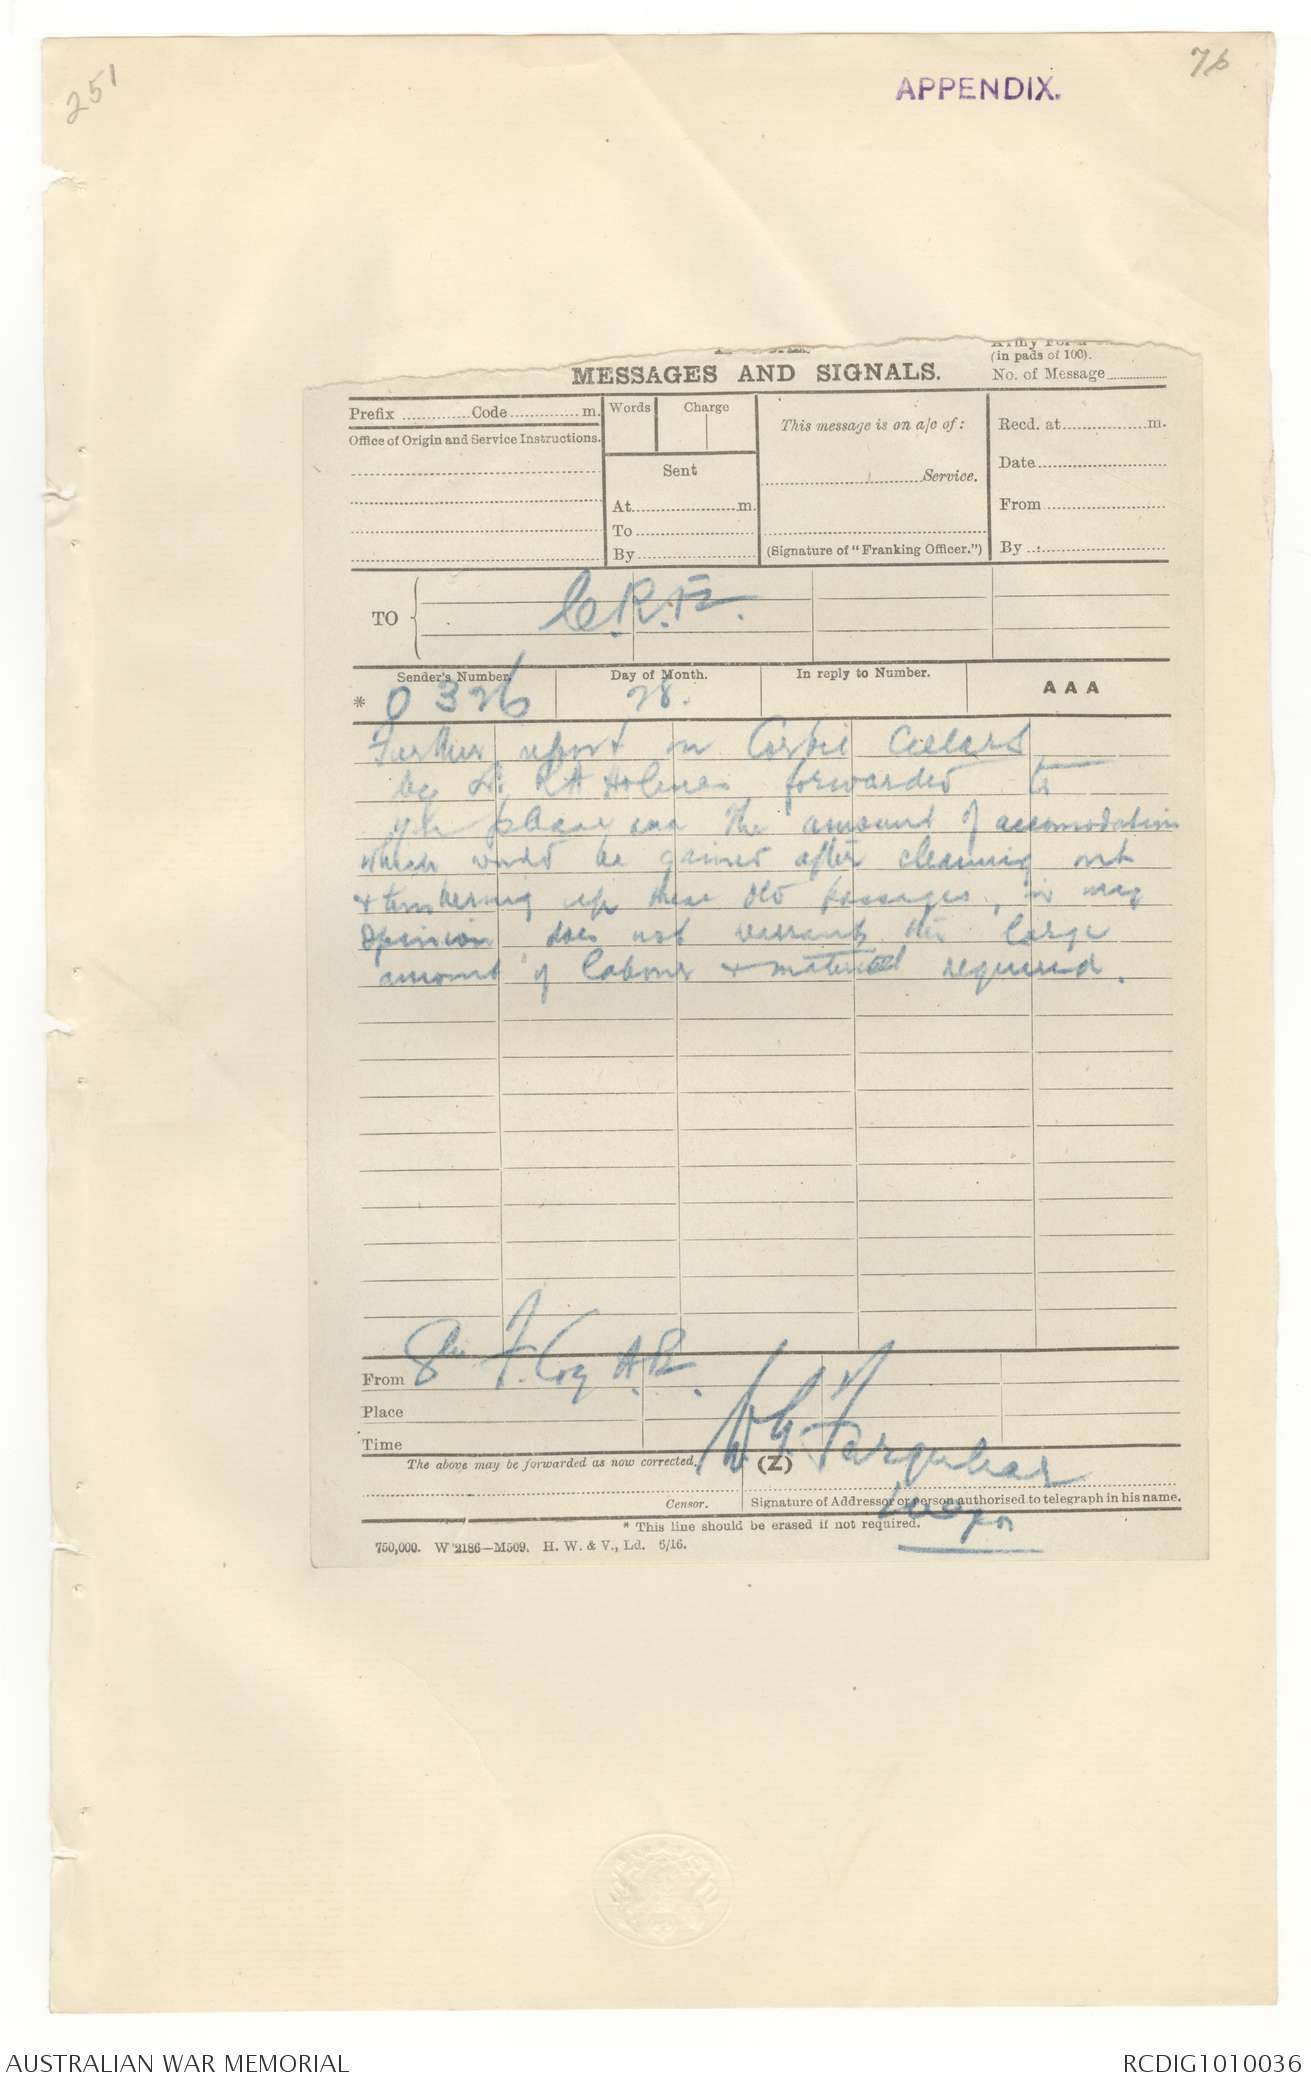 251
76
APPENDIX.
(in pads of 100).
MESSAGES AND SIGNALS.
No. of Message
Prefix Code m. Words Charge
This message is on a/c of: Recd. at m.
Office of Origin and Service Instructions.
Sent
Service. Date
At m.
From
To
By (Signature of "Franking Officer.") By
TO C.R.E.
Sender's Number. Day of Month. In reply to Number. AAA
* O 326 28.
Further report on Corbie Cellars
by Lt. R A Holmes forwarded to
you please aaa The amount of accomodation
which would be gained after cleaning out
& timbering up these old passages, in my
opinion does not warrant the large
amount of labour & material required.
From 8th F. Coy A.E.
Place
Time
W G Farquhar
The above may be forwarded as now corrected. (Z)
Censor. Signature of Addressor or person authorised to telegraph in his name.
Major
* This line should be erased if not required.
750,000. W 2186—M509. H. W. & V., Ld. 6/16.
AUSTRALIAN WAR MEMORIAL
RCDIG1010036